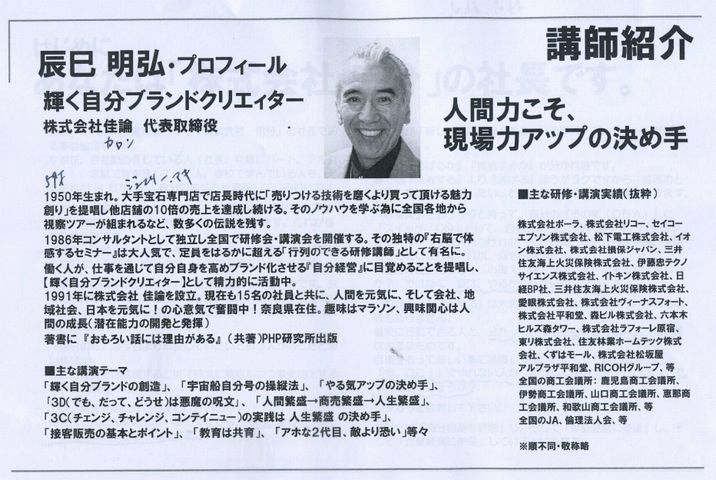 講師紹介
辰巳 明弘・プロフィール
輝く自分ブランドクリエィター
株式会社佳論 代表取締役
カロン
人間力こそ、
現場力アップの決め手
1950年生まれ。大手宝石専門店で店長時代に「売りつける技術を磨くより買って頂ける魅力
創り」を提唱し他店舗の10倍の売上を達成し続ける。そのノウハウを学ぶ為に全国各地から
視察ツアーが組まれるなど、数多くの伝説を残す。
1986年コンサルタントとして独立し全国で研修会・講演会を開催する。その独特の『右脳で体
感するセミナー』は大人気で、定員をはるかに超える「行列のできる研修講師」として有名に。
働く人が、仕事を通じて自分自身を高めブランド化させる『自分経営』に目覚めることを提唱し、
【輝く自分ブランドクリエィター】として精力的に活動中。
1991年に株式会社 佳論を設立。現在も15名の社員と共に、人間を元気に、そして会社、地
域社会、日本を元気に!の心意気で奮闘中!奈良県在住。趣味はマラソン、興味関心は人
間の成長(潜在能力の開発と発揮)
著書に 『おもろい話には理由がある』 (共著)PHP研究所出版
■主な講演テーマ
「輝く自分ブランドの創造」、 「宇宙船自分号の操縦法」、 「やる気アップの決め手」、
「3D(でも、だって、どうせ)は悪魔の呪文」、 「人間繁盛→商売繁盛→人生繁盛」、
「3C(チェンジ、チャレンジ、コンテイニュー)の実践は 人生繁盛 の決め手」、
「接客販売の基本とポイント」、 「教育は共育」、 「アホな2代目、敵より恐い」等々
■主な研修・講演実績(抜粋)
株式会社ポーラ、株式会社リコー、セイコー
エプソン株式会社、松下電工株式会社、イオ
ン株式会社、株式会社損保ジャパン、三井
住友海上火災保険株式会社、伊藤忠テクノ
サイエンス株式会社、イトキン株式会社、日
経BP社、三井住友海上火災保険株式会社、
愛眼株式会社、株式会社ヴィーナスフォート、
株式会社平和堂、森ビル株式会社、六本木
ヒルズ森タワー、株式会社ラフォーレ原宿、
東リ株式会社、住友林業ホームテック株式
会社、くずはモール、株式会社松坂屋
アルプラザ平和堂、RICOHグループ、等
全国の商工会議所: 鹿児島商工会議所、
伊勢商工会議所、山口商工会議所、恵那商
工会議所、和歌山商工会議所、等
全国のJA、倫理法人会、等
※順不同・敬称略